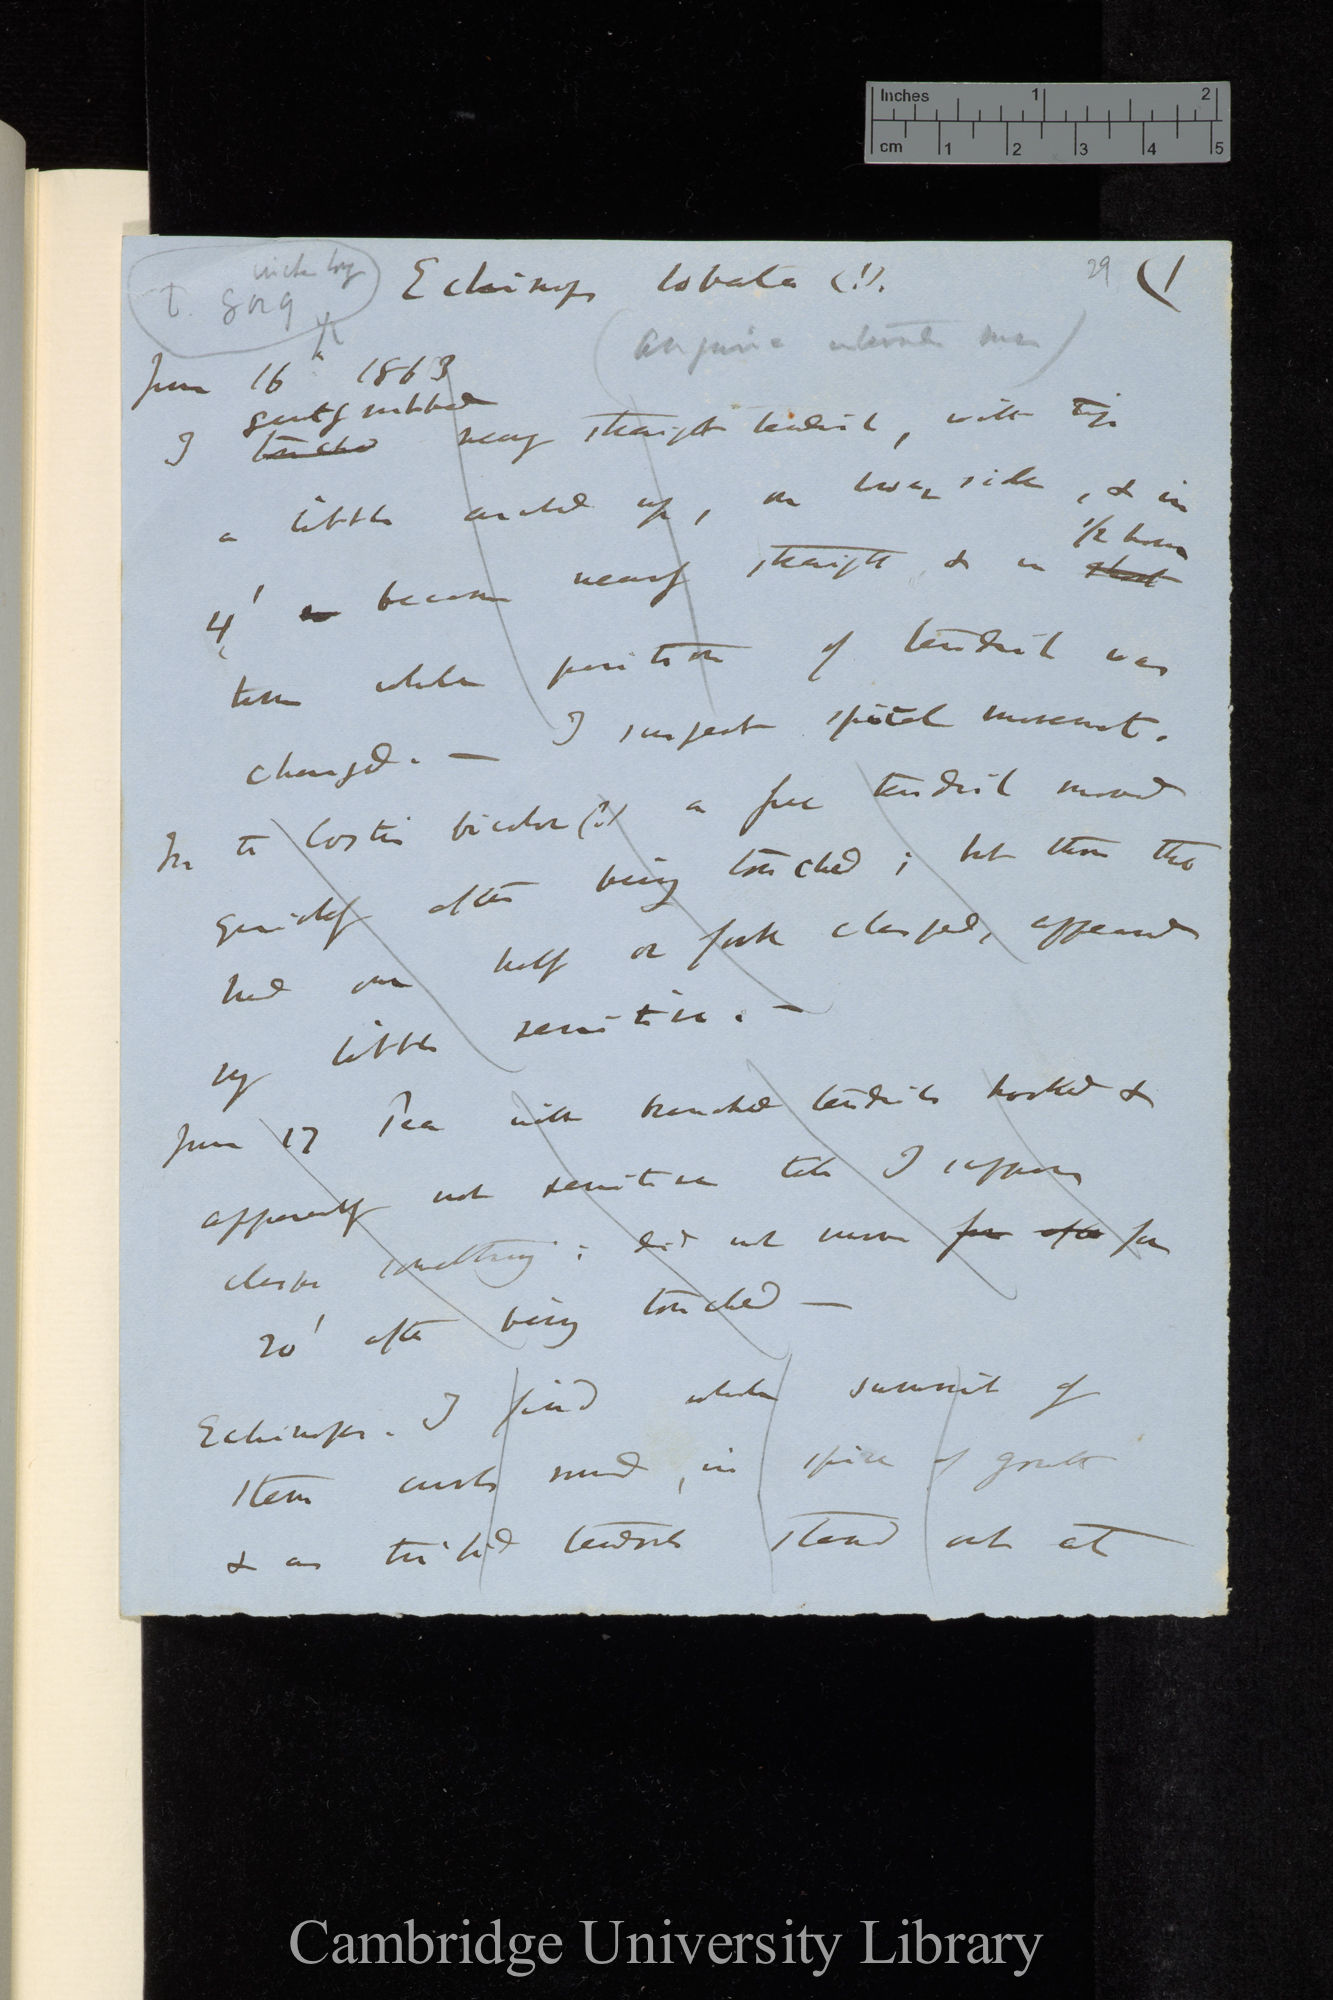 Inches 1 2
cm 1 2 3 4 5
29 (1
Echinops lobata (!).
June 16th 1863
gently rubbed
I touched nearly straight tendril, with tip
a little arched up, on lower side, & in
1/2 hour
4' became nearly straight & in
time whole position of tendril was
changed. — I suspect spiral movement.
In the bicolor (?) a free tendril moved
quickly after being touched; but then the
had one half or fork clasped, appeared
very little sensitive. —
June 17 Pea with branched tendrils hooked &
apparently not sensitive till I suppose
clasps something; did not move for after for
20' after being touched —
Echinops. I find whole summit of
stem curls round, in spire of growth
& as trifid tendrils stand out at
Cambridge University Library